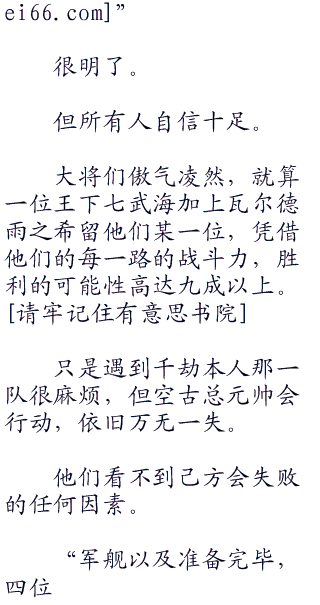 ei66.com]”
很明了。
但所有人自信十足。
大将们傲气凌然，就算
一位王下七武海加上瓦尔德
雨之希留他们某一位，凭借
他们的每一路的战斗力，胜
利的可能性高达九成以上。
[请牢记住有意思书院]
只是遇到千劫本人那一
队很麻烦，但空古总元帅会
行动，依旧万无一失。
他们看不到己方会失败
的任何因素。
“军舰以及准备完毕，
四位